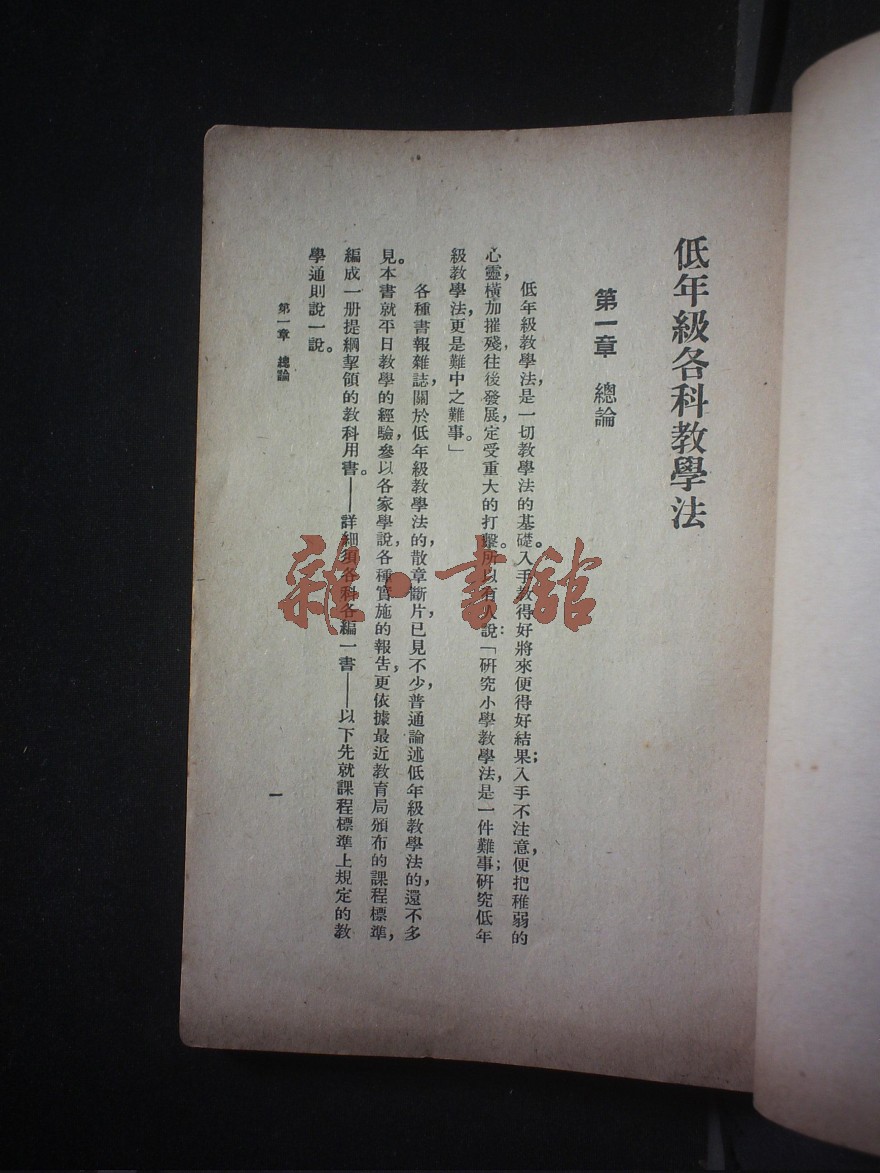 低年級各科教學法
第一章 總論
低年級教學法，是一切教學法的基礎。入手教得好將來便得好結果；入手不注意，便把稚弱的
心靈，橫加摧殘，往後發展，定受重大的打擊。所以有人說：「研究小學教學法，是一件難事；研究低年
級教學法，更是難中之難事。」
各種書報雜誌，關於低年級教學法的，散章斷片，已見不少，普通論述低年級教學法的，還不多
見。本書就平日教學的經驗，參以各家學說，各種實施的報告，更依據最近教育局頒布的課程標準，
編成一册提綱挈領的教科用書。——詳細須各科各編一書——以下先就課程標準上規定的教
學通則說一說。
第一章 總論
一
雜·書館